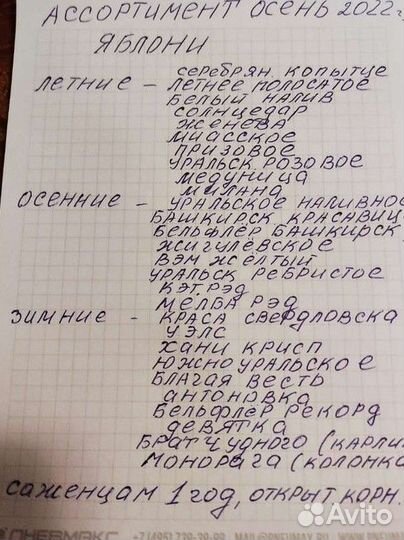 АССОРТИМЕНТ ОСЕНЬ 2022г
ЯБЛОНИ
СЕРЕБРЯН. КОПЫТЦЕ
ЛЕТНИЕ – ЛЕТНЕЕ ПОЛОСАТОЕ
БЕЛЫЙ НАЛИВ
СОЛНЦЕДАР
ЖЕНЕВА
МИАССКОЕ
ПРИЗОВОЕ
УРАЛЬСК. РОЗОВОЕ
МЕДУНИЦА
МИЛАНА
ОСЕННИЕ – УРАЛЬСКОЕ НАЛИВНОЕ
БАШКИРСК. КРАСАВИЦ
БЕЛЬФЛЕР БАШКИРСК
ЖИГУЛЕВСКОЕ
ВЭМ ЖЕЛТЫЙ
УРАЛЬСК РЕБРИСТОЕ
КЭТ. РЭД
МЕЛБА РЭД
ЗИМНИЕ – КРАСА СВЕРДЛОВСКА
УЭЛС
ХАНИ КРИСП
ЮЖНОУРАЛЬСКОЕ
БЛАГАЯ ВЕСТЬ
АНТОНОВКА
БЕЛЬФЛЕР РЕКОРД
ДЕВЯТКА
БРАТ ЧУДНОГО (КАРЛИ
МОНОРАГА (КОЛОНКА
САЖЕНЦАМ 1 ГОД, ОТКРЫТ. КОРН.
Avito